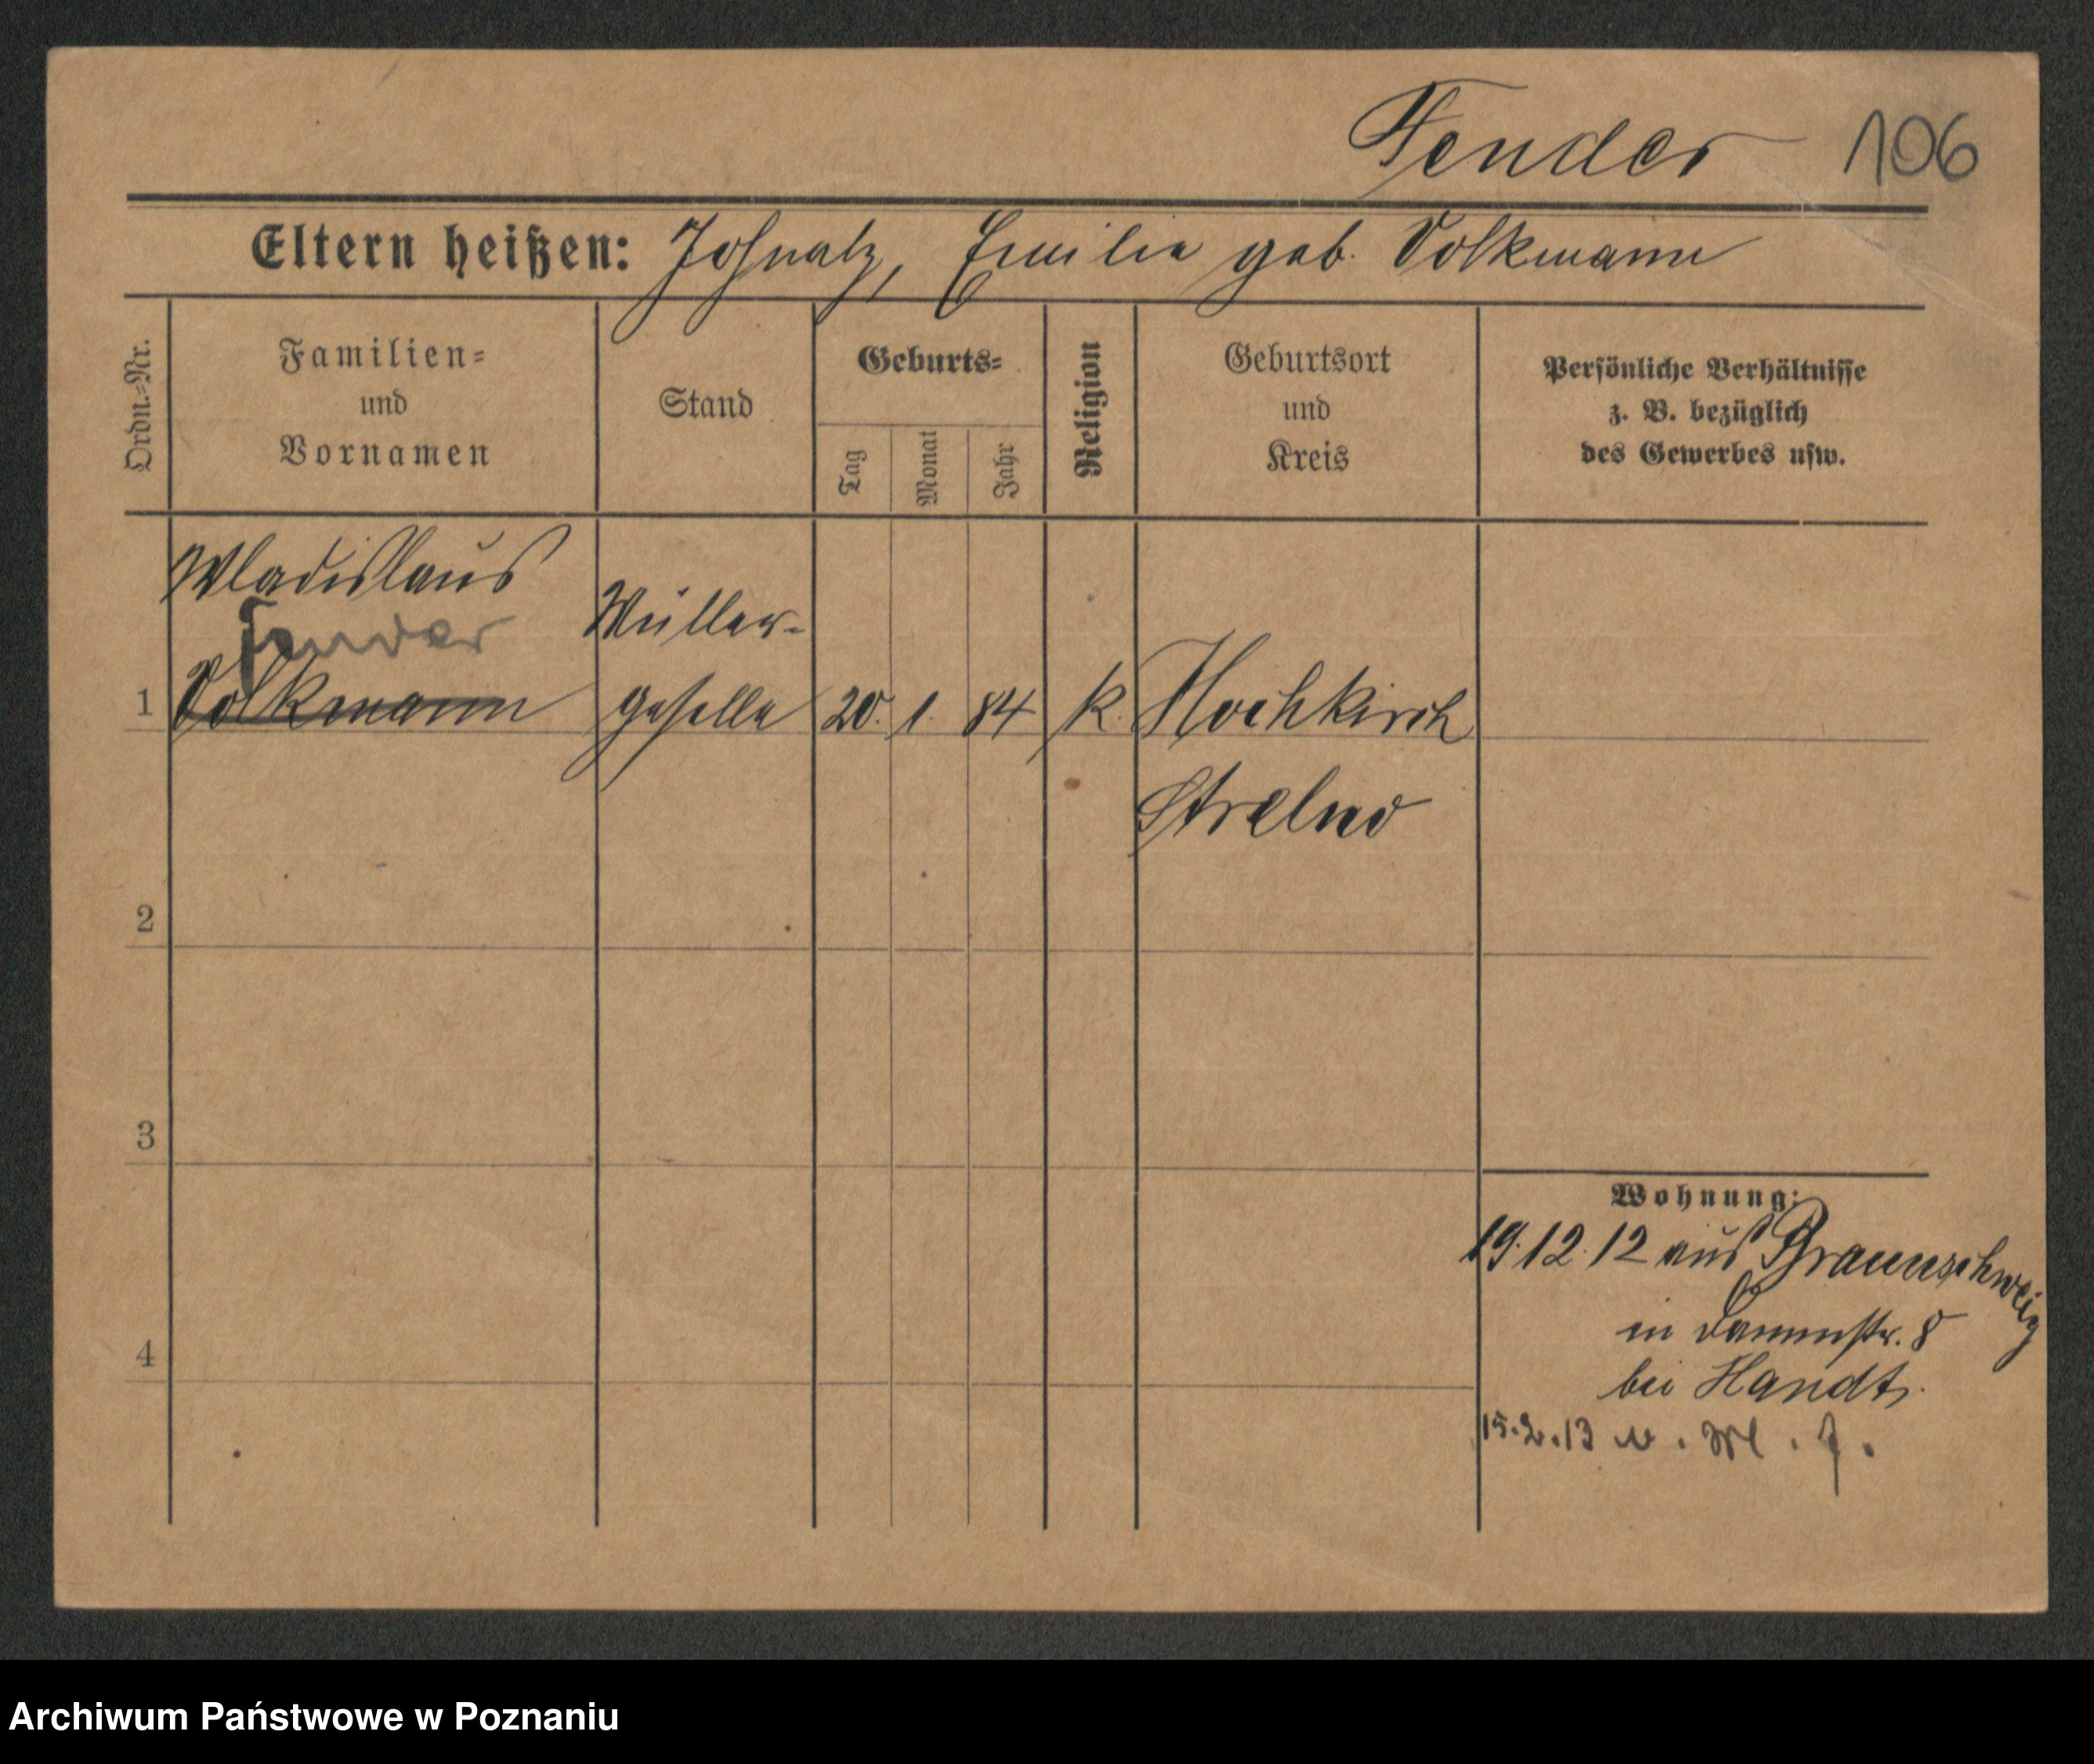 Fender 106
Eltern heißen: Emilie geb. Volkmann
Ordn.=Nr.
Familien=
und
Vornamen
Stand
Geburts=
Tag
Monat
Jahr
Religion
Geburtsort
und
Kreis
Persönliche Verhältnisse
z. B. bezüglich
des Gewerbes usw.
Wladislaus
Fender
Müller-
1 Volkmann geselle 20. 1. 84 k. Hochkirch
Strelno
2
3
4
Wohnung:
19.12.12 aus Braunschweig
in Dammstr. 8
bei Handt.
15.2.13
Archiwum Państwowe w Poznaniu